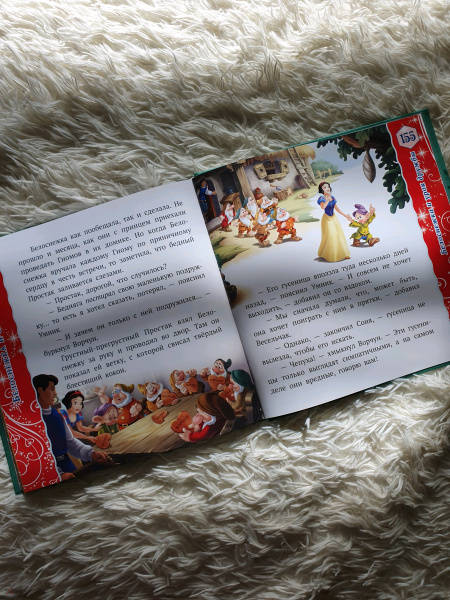 Белоснежка как пообещала, так и сделала. Не
прошло и месяца, как они с принцем приехали
проведать Гномов в их домике. Но когда Бело-
снежка вручала каждому Гному по пряничному
сердцу в честь встречи, то заметила, что бедный
Простак заливается слезами.
– Простак, дорогой, что случилось?
– Бедняга потерял свою маленькую подруж-
ку, – то есть я хотел сказать, потерял, – пояснил
Умник.
– И зачем он только с ней подружился... –
буркнул Ворчун.
Грустный-прегрустный Простак взял Бело-
снежку за руку и проводил во двор. Там он
показал ей ветку, с которой свисал твёрдый
блестящий кокон.
155
– Его гусеница вползла туда несколько дней
назад, – пояснил Умник. – И совсем не хочет
выходить, – добавил он со вздохом.
– Мы сначала думали, что, может быть,
она хочет поиграть с ним в прятки, – добавил
Весельчак.
– Однако, – закончил Соня, – гусеница не
вылезла, чтобы его искать.
– Чепуха! – хмыкнул Ворчун. – Эти гусени-
цы только выглядят симпатичными, а на самом
деле они вредные, говорю вам!